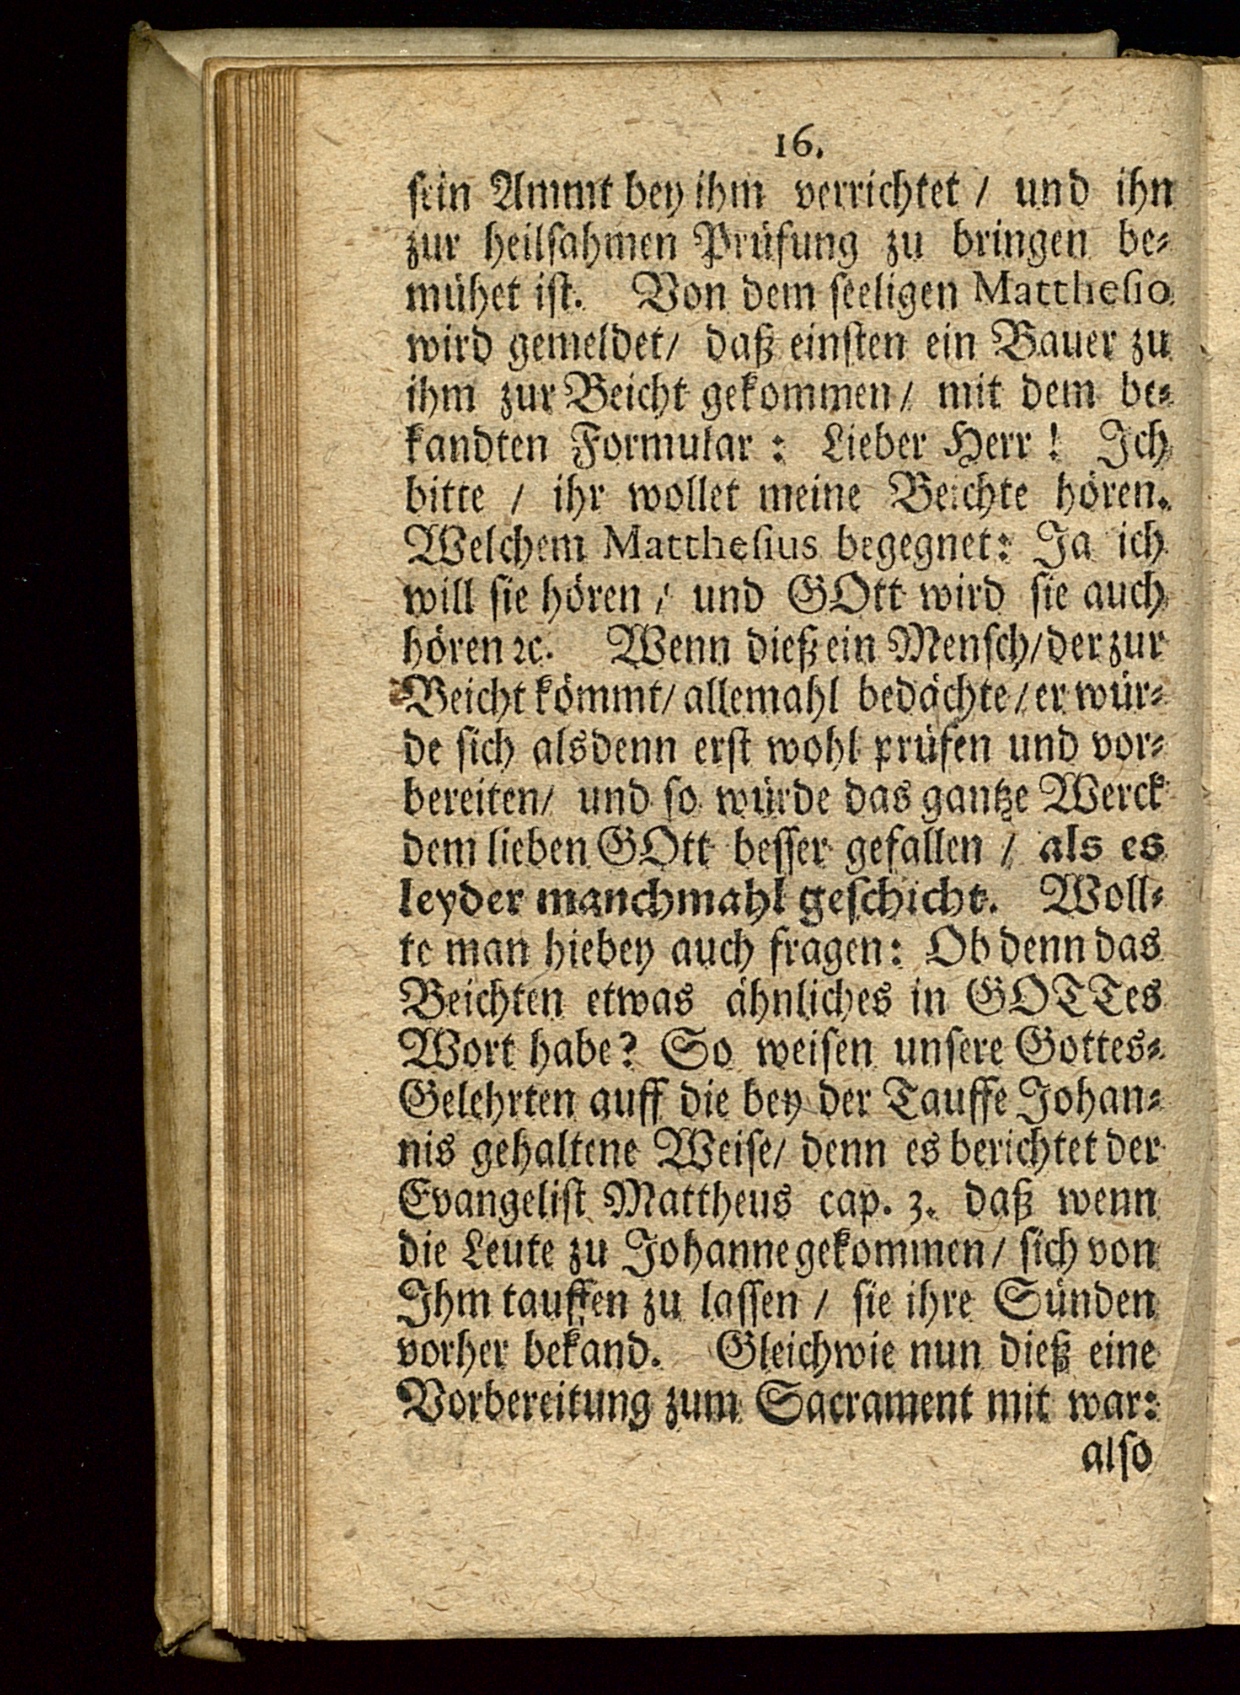 16.
sein Ammt bey ihm verrichtet / und ihn
zur heilsahmen Prüfung zu bringen be-
mühet ist. Von dem seeligen Matthesio
wird gemeldet/ daß einsten ein Bauer zu
ihm zur Beicht gekommen/ mit dem be-
kandten Formular: Lieber Herr! Ich
bitte / ihr wollet meine Beichte hören.
Welchem Matthesius begegnet: Ja ich
will sie hören / und GOtt wird sie auch
hören ꝛc. Wenn dieß ein Mensch/der zur
Beicht kömmt/ allemahl bedächte / er wür-
de sich alsdenn erst wohl prüfen und vor-
bereiten/ und so würde das gantze Werck
dem lieben GOtt besser gefallen / als es
leyder manchmahl geschicht. Woll-
te man hiebey auch fragen: Ob denn das
Beichten etwas ähnliches in GOTTes
Wort habe? So weisen unsere Gottes-
Gelehrten auff die bey der Tauffe Johan-
nis gehaltene Weise/ denn es berichtet der
Evangelist Mattheus cap. 3. daß wenn
die Leute zu Johanne gekommen/ sich von
Ihm tauffen zu lassen / sie ihre Sünden
vorher bekand. Gleichwie nun dieß eine
Vorbereitung zum Sacrament mit war:
also